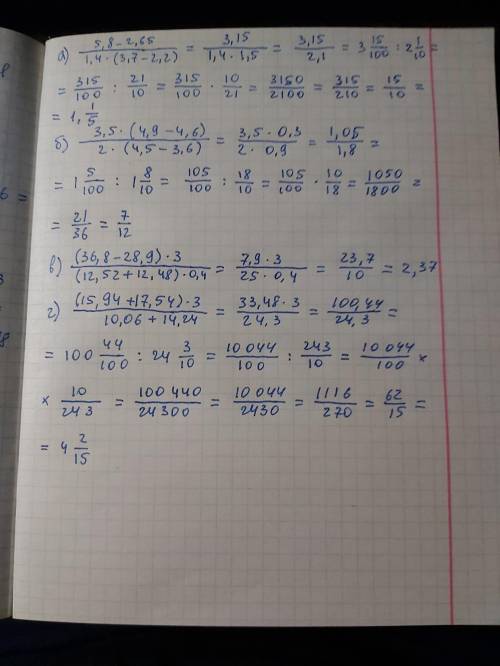 а) (5,8-2,65)/(1,4·(3,7-2,2)) = 3,15/(1,4·1,5) = 3,15/2,1 = 3 15/100 : 2 1/10 =
= 315/100 : 21/10 = 315/100 · 10/21 = 3150/2100 = 315/210 = 15/10 =
= 1, 1/5
б) (3,5·(4,9-4,6))/(2·(4,5-3,6)) = (3,5·0,3)/(2·0,9) = 1,05/1,8 =
= 1 5/100 : 1 8/10 = 105/100 : 18/10 = 105/100 · 10/18 = 1050/1800 =
= 21/36 = 7/12
в) ((36,8-28,9)·3)/((12,52+12,48)·0,4) = (7,9·3)/(25·0,4) = 23,7/10 = 2,37
г) ((15,94+17,54)·3)/(10,06+14,24) = (33,48·3)/24,3 = 100,44/24,3 =
= 100 44/100 : 24 3/10 = 10044/100 : 243/10 = 10044/100 ×
× 10/243 = 100440/24300 = 10044/2430 = 1116/270 = 62/15 =
= 4 2/15